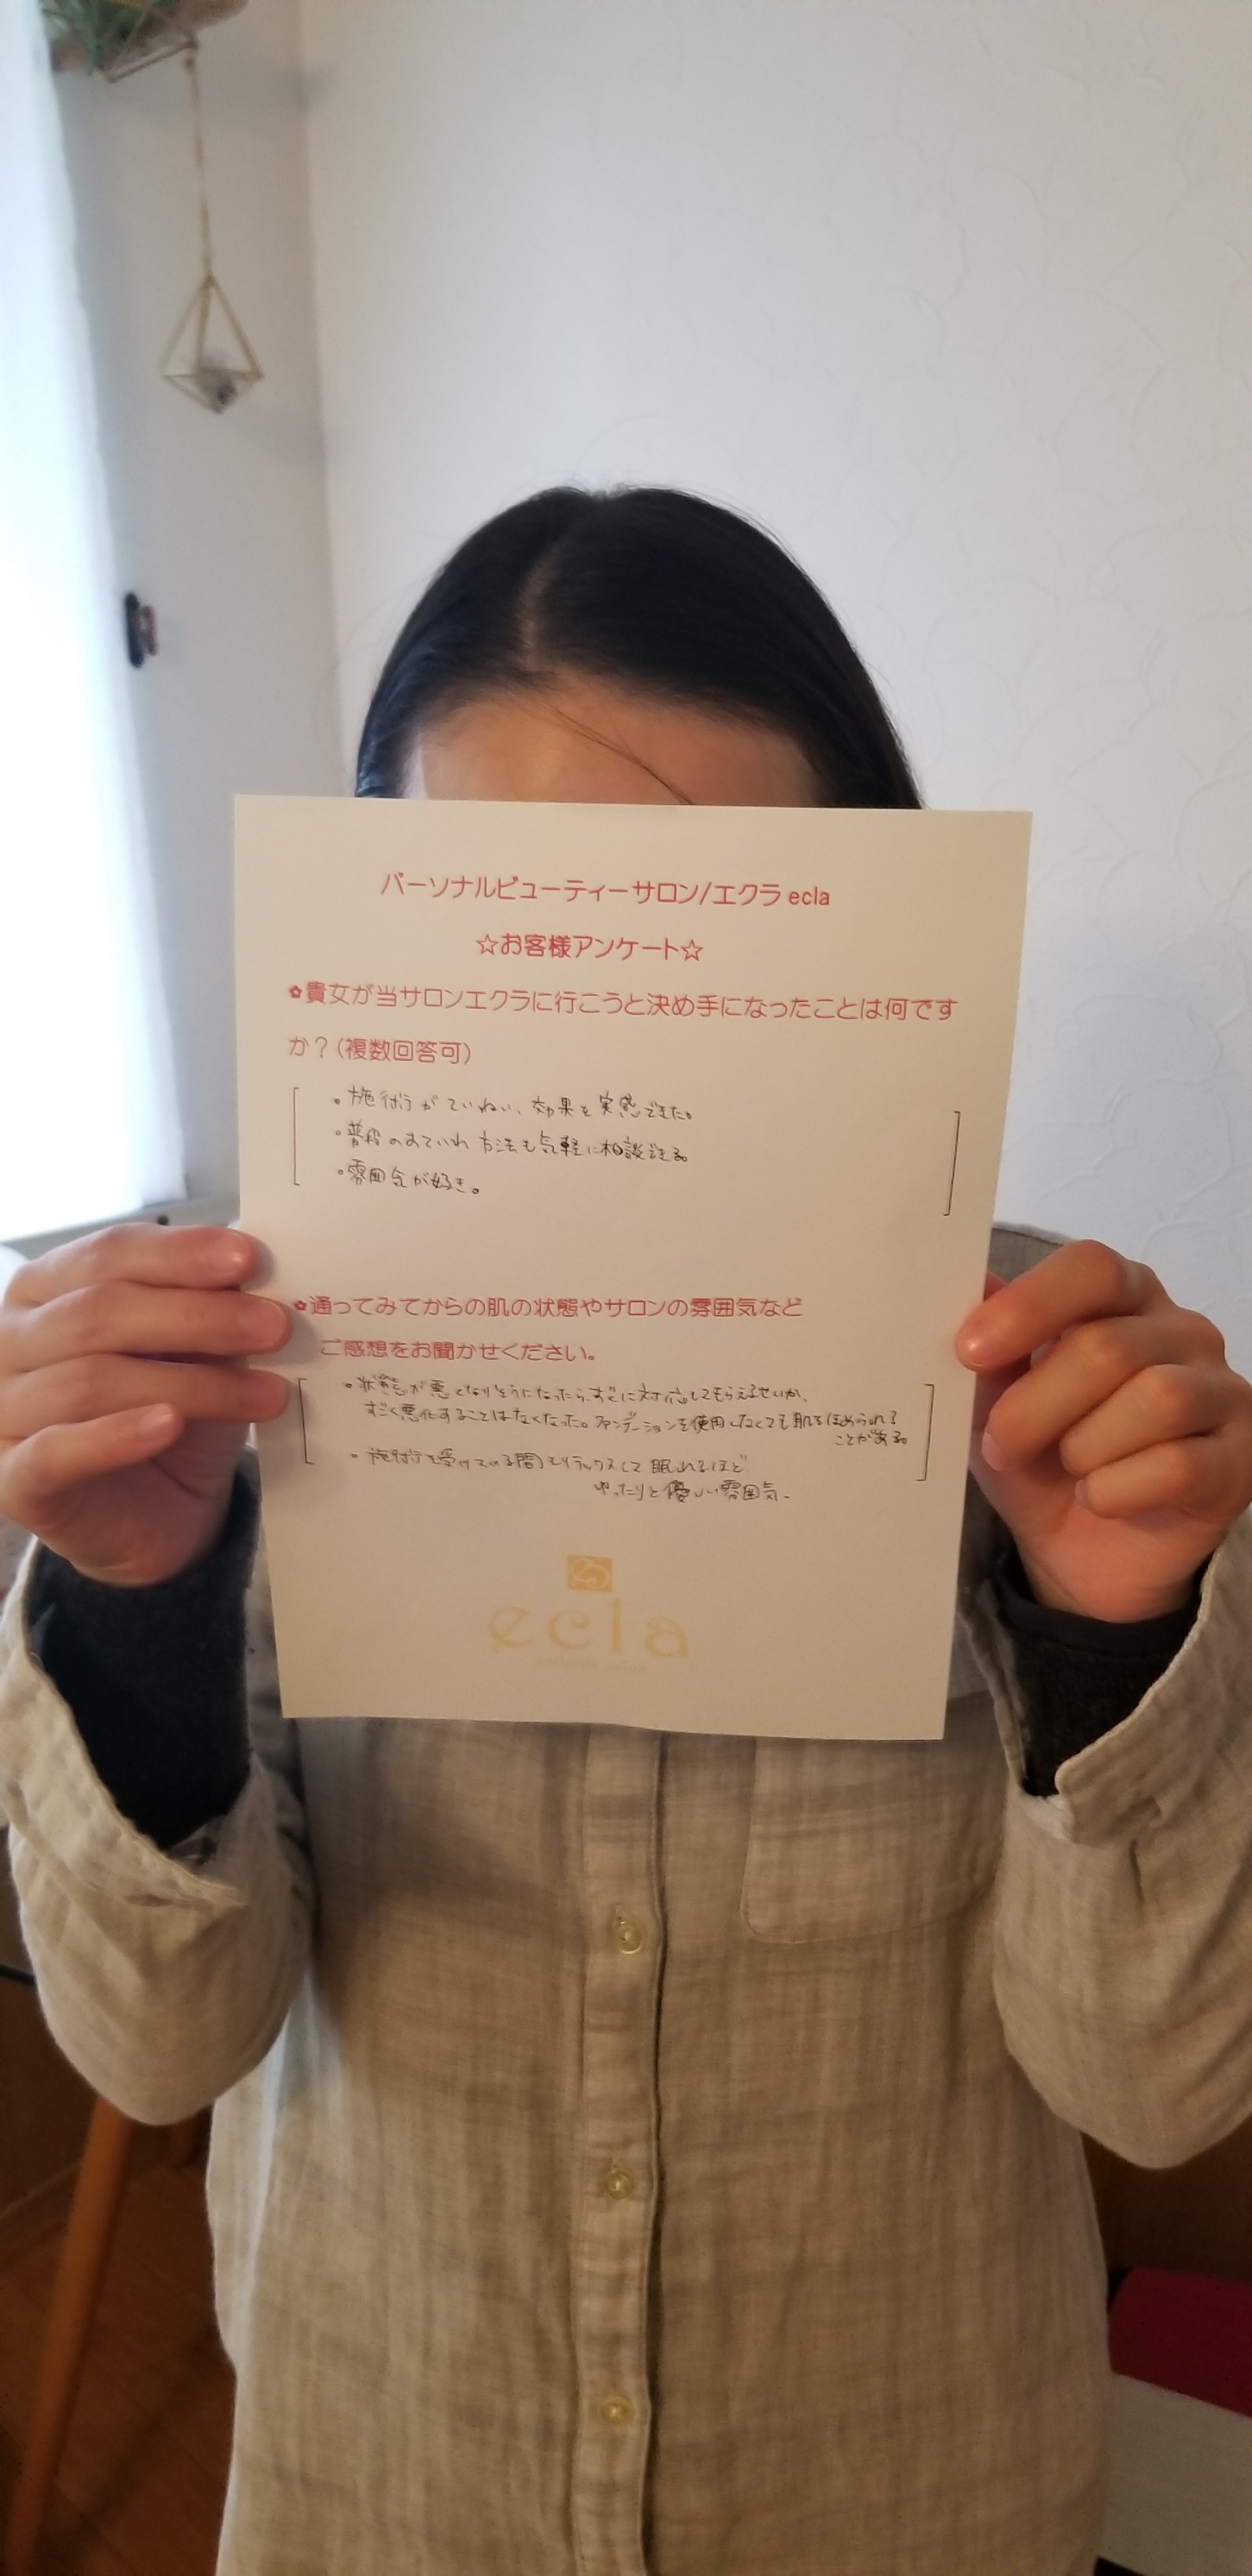 パーソナルビューティーサロン/エクラ ecla
☆お客様アンケート☆
✿貴女が当サロンエクラに行こうと決め手になったことは何です
か?(複数回答可)
・施術がていねい、効果を実感できた。
・普段のおていれ方法も気軽に相談できる。
・雰囲気が好き。
✿通ってみてからの肌の状態やサロンの雰囲気など
ご感想をお聞かせください。
・状態が悪くなりそうになったら、すぐに対応してもらえるせいか、
すごく悪化することはなくなった。ファンデーションを使用しなくても肌をほめられる
ことがある。
・施術を受けている間もリラックスして眠れるほど
ゆったりと優しい雰囲気。
ecla